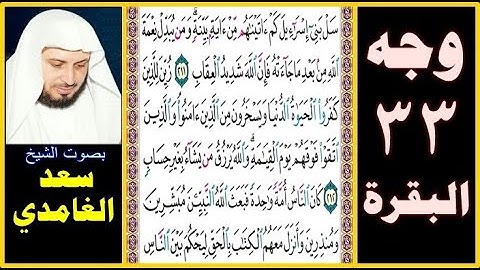 وجه
٣٣
البقرة
سَلْ بَنِىٓ إِسْرَٰٓءِيلَ كَمْ ءَاتَيْنَٰهُم مِّنْ ءَايَةٍۭ بَيِّنَةٍ ۗ وَمَن يُبَدِّلْ نِعْمَةَ
ٱللَّهِ مِنۢ بَعْدِ مَا جَآءَتْهُ فَإِنَّ ٱللَّهَ شَدِيدُ ٱلْعِقَابِ ٢١١ زُيِّنَ لِلَّذِينَ
كَفَرُوا۟ ٱلْحَيَوٰةُ ٱلدُّنْيَا وَيَسْخَرُونَ مِنَ ٱلَّذِينَ ءَامَنُوا۟ ۘ وَٱلَّذِينَ
ٱتَّقَوْا۟ فَوْقَهُمْ يَوْمَ ٱلْقِيَٰمَةِ ۗ وَٱللَّهُ يَرْزُقُ مَن يَشَآءُ بِغَيْرِ حِسَابٍ
٢١٢ كَانَ ٱلنَّاسُ أُمَّةً وَٰحِدَةً فَبَعَثَ ٱللَّهُ ٱلنَّبِيِّـۧنَ مُبَشِّرِينَ
وَمُنذِرِينَ وَأَنزَلَ مَعَهُمُ ٱلْكِتَٰبَ بِٱلْحَقِّ لِيَحْكُمَ بَيْنَ ٱلنَّاسِ
بصوت الشيخ
سعد
الغامدي